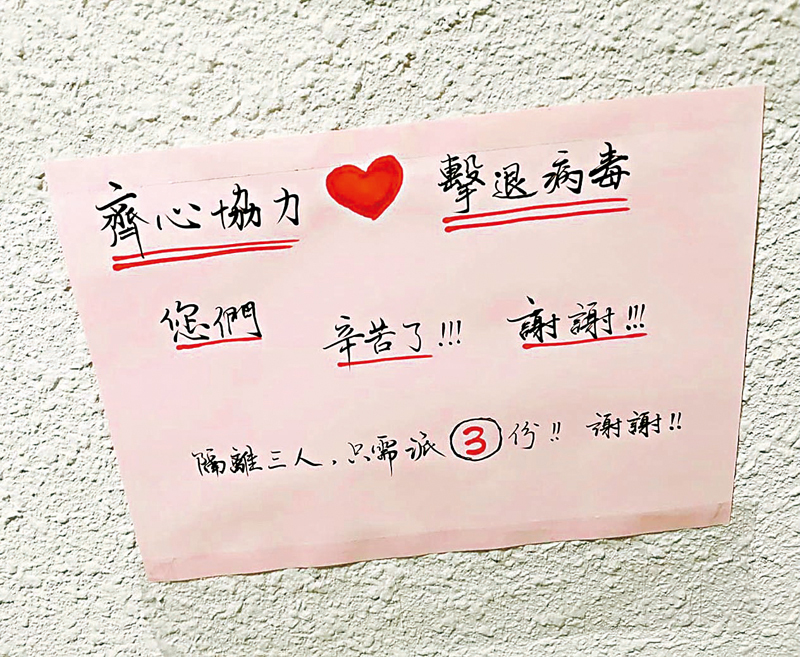 齊心協力 擊退病毒
您們 辛苦了!!! 謝謝!!!
隔離三人，只需派3份!! 謝謝!!